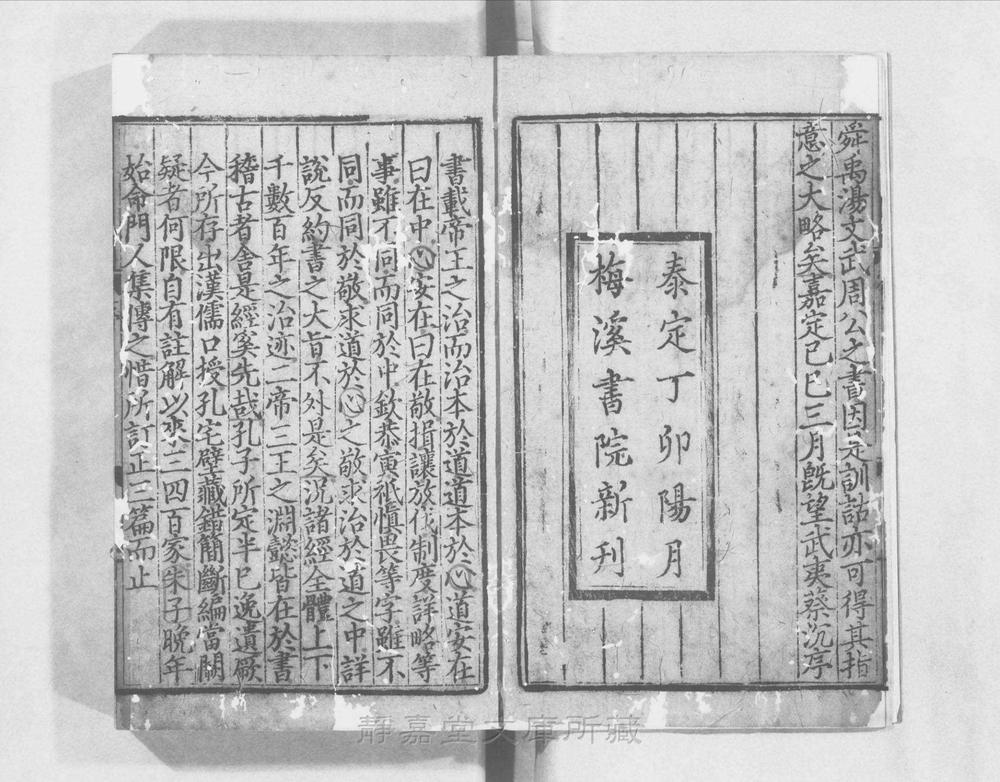 舜禹湯文武周公之書因是訓詁亦可得其指
意之大略矣嘉定己巳三月既望武夷蔡沉序
泰定丁卯陽月
梅溪書院新刊
書載帝王之治而治本於道道本於心道安在
曰在中心安在曰在敬揖讓放伐制度詳略等
事雖不同而同於中欽恭寅祗慎畏等字雖不
同而同於敬求道於心之敬求治於道之中詳
說反約書之大旨不外是矣況諸經全體上下
千數百年之治迹二帝三王之淵懿皆在於書
稽古者舍是經奚先哉孔子所定半已逸遺厥
今所存出漢儒口授孔宅壁藏錯簡斷編當闕
疑者何限自有註解以來三四百家朱子晚年
始命門人集傳之惜所訂正三篇而止
靜嘉堂文庫所藏